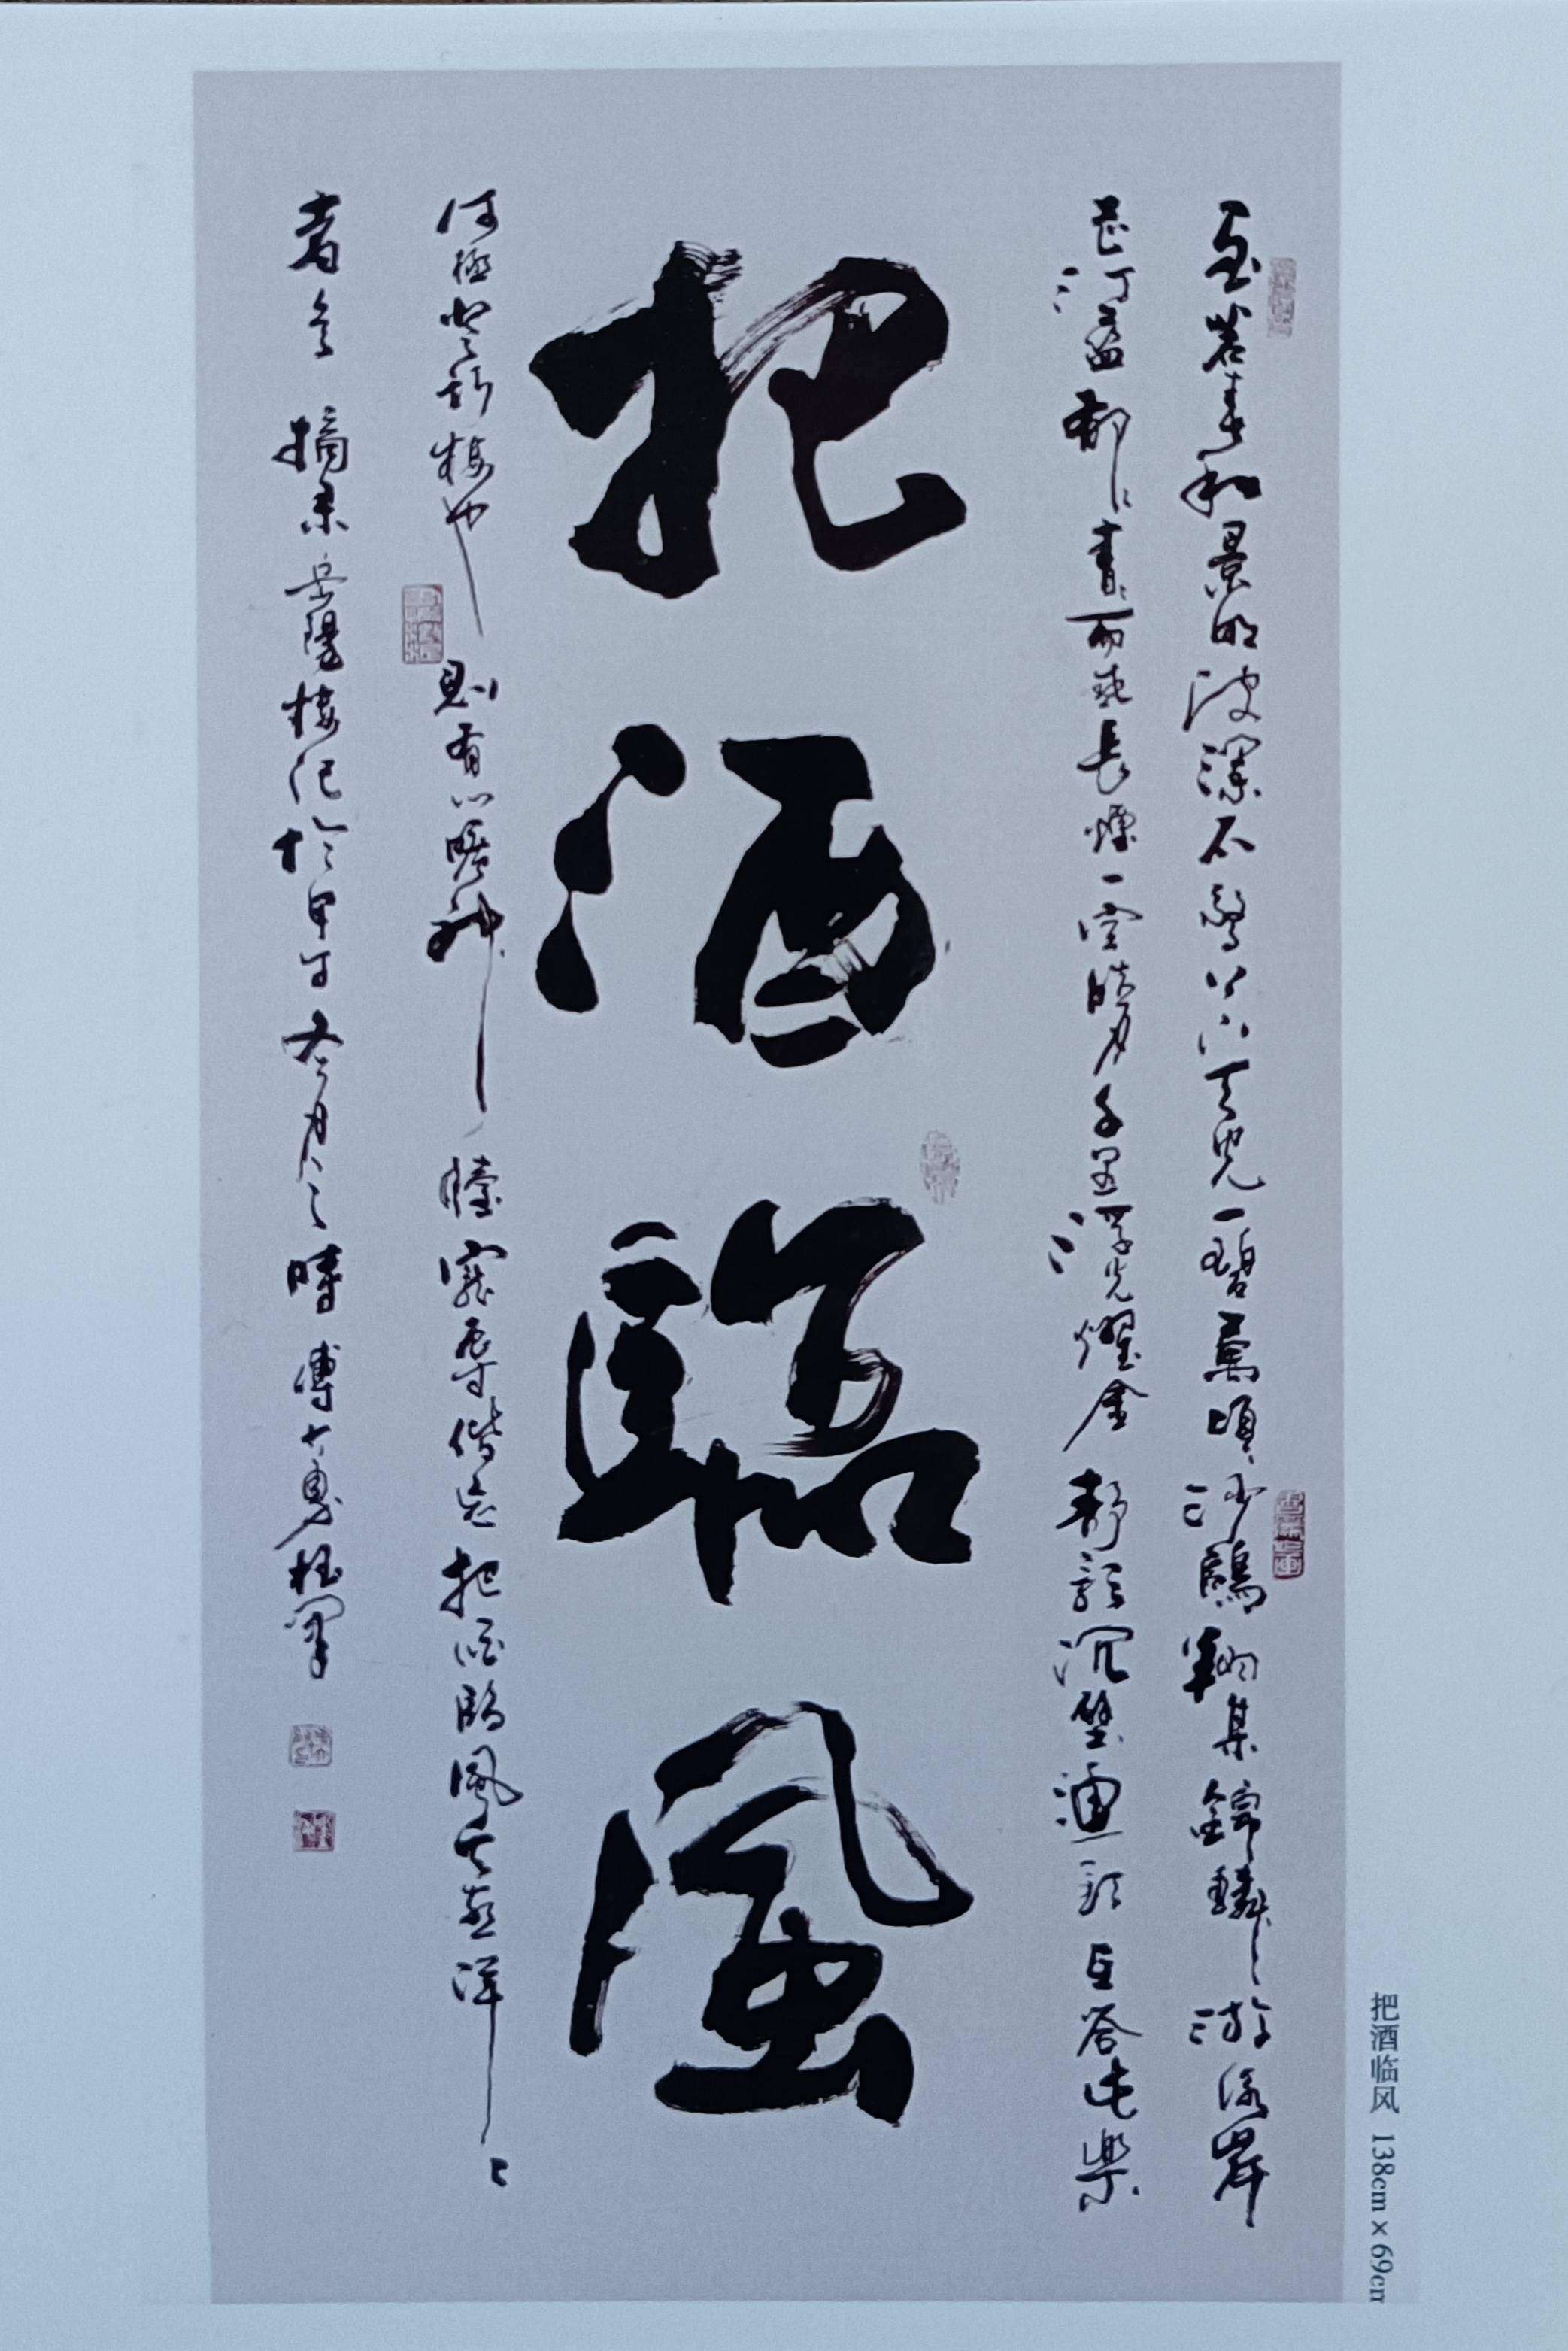 至若春和景明波瀾不驚上下天光一碧萬頃沙鷗翔集錦鱗游泳岸
芷汀蘭郁郁青青而或長煙一空皓月千里浮光耀金靜影沉璧漁歌互答此樂
把酒臨風
何極登斯樓也則有心曠神怡寵辱偕忘把酒臨風其喜洋洋
者矣 摘录岳陽樓記於甲午冬月之時
把酒临风 138cm×69cm